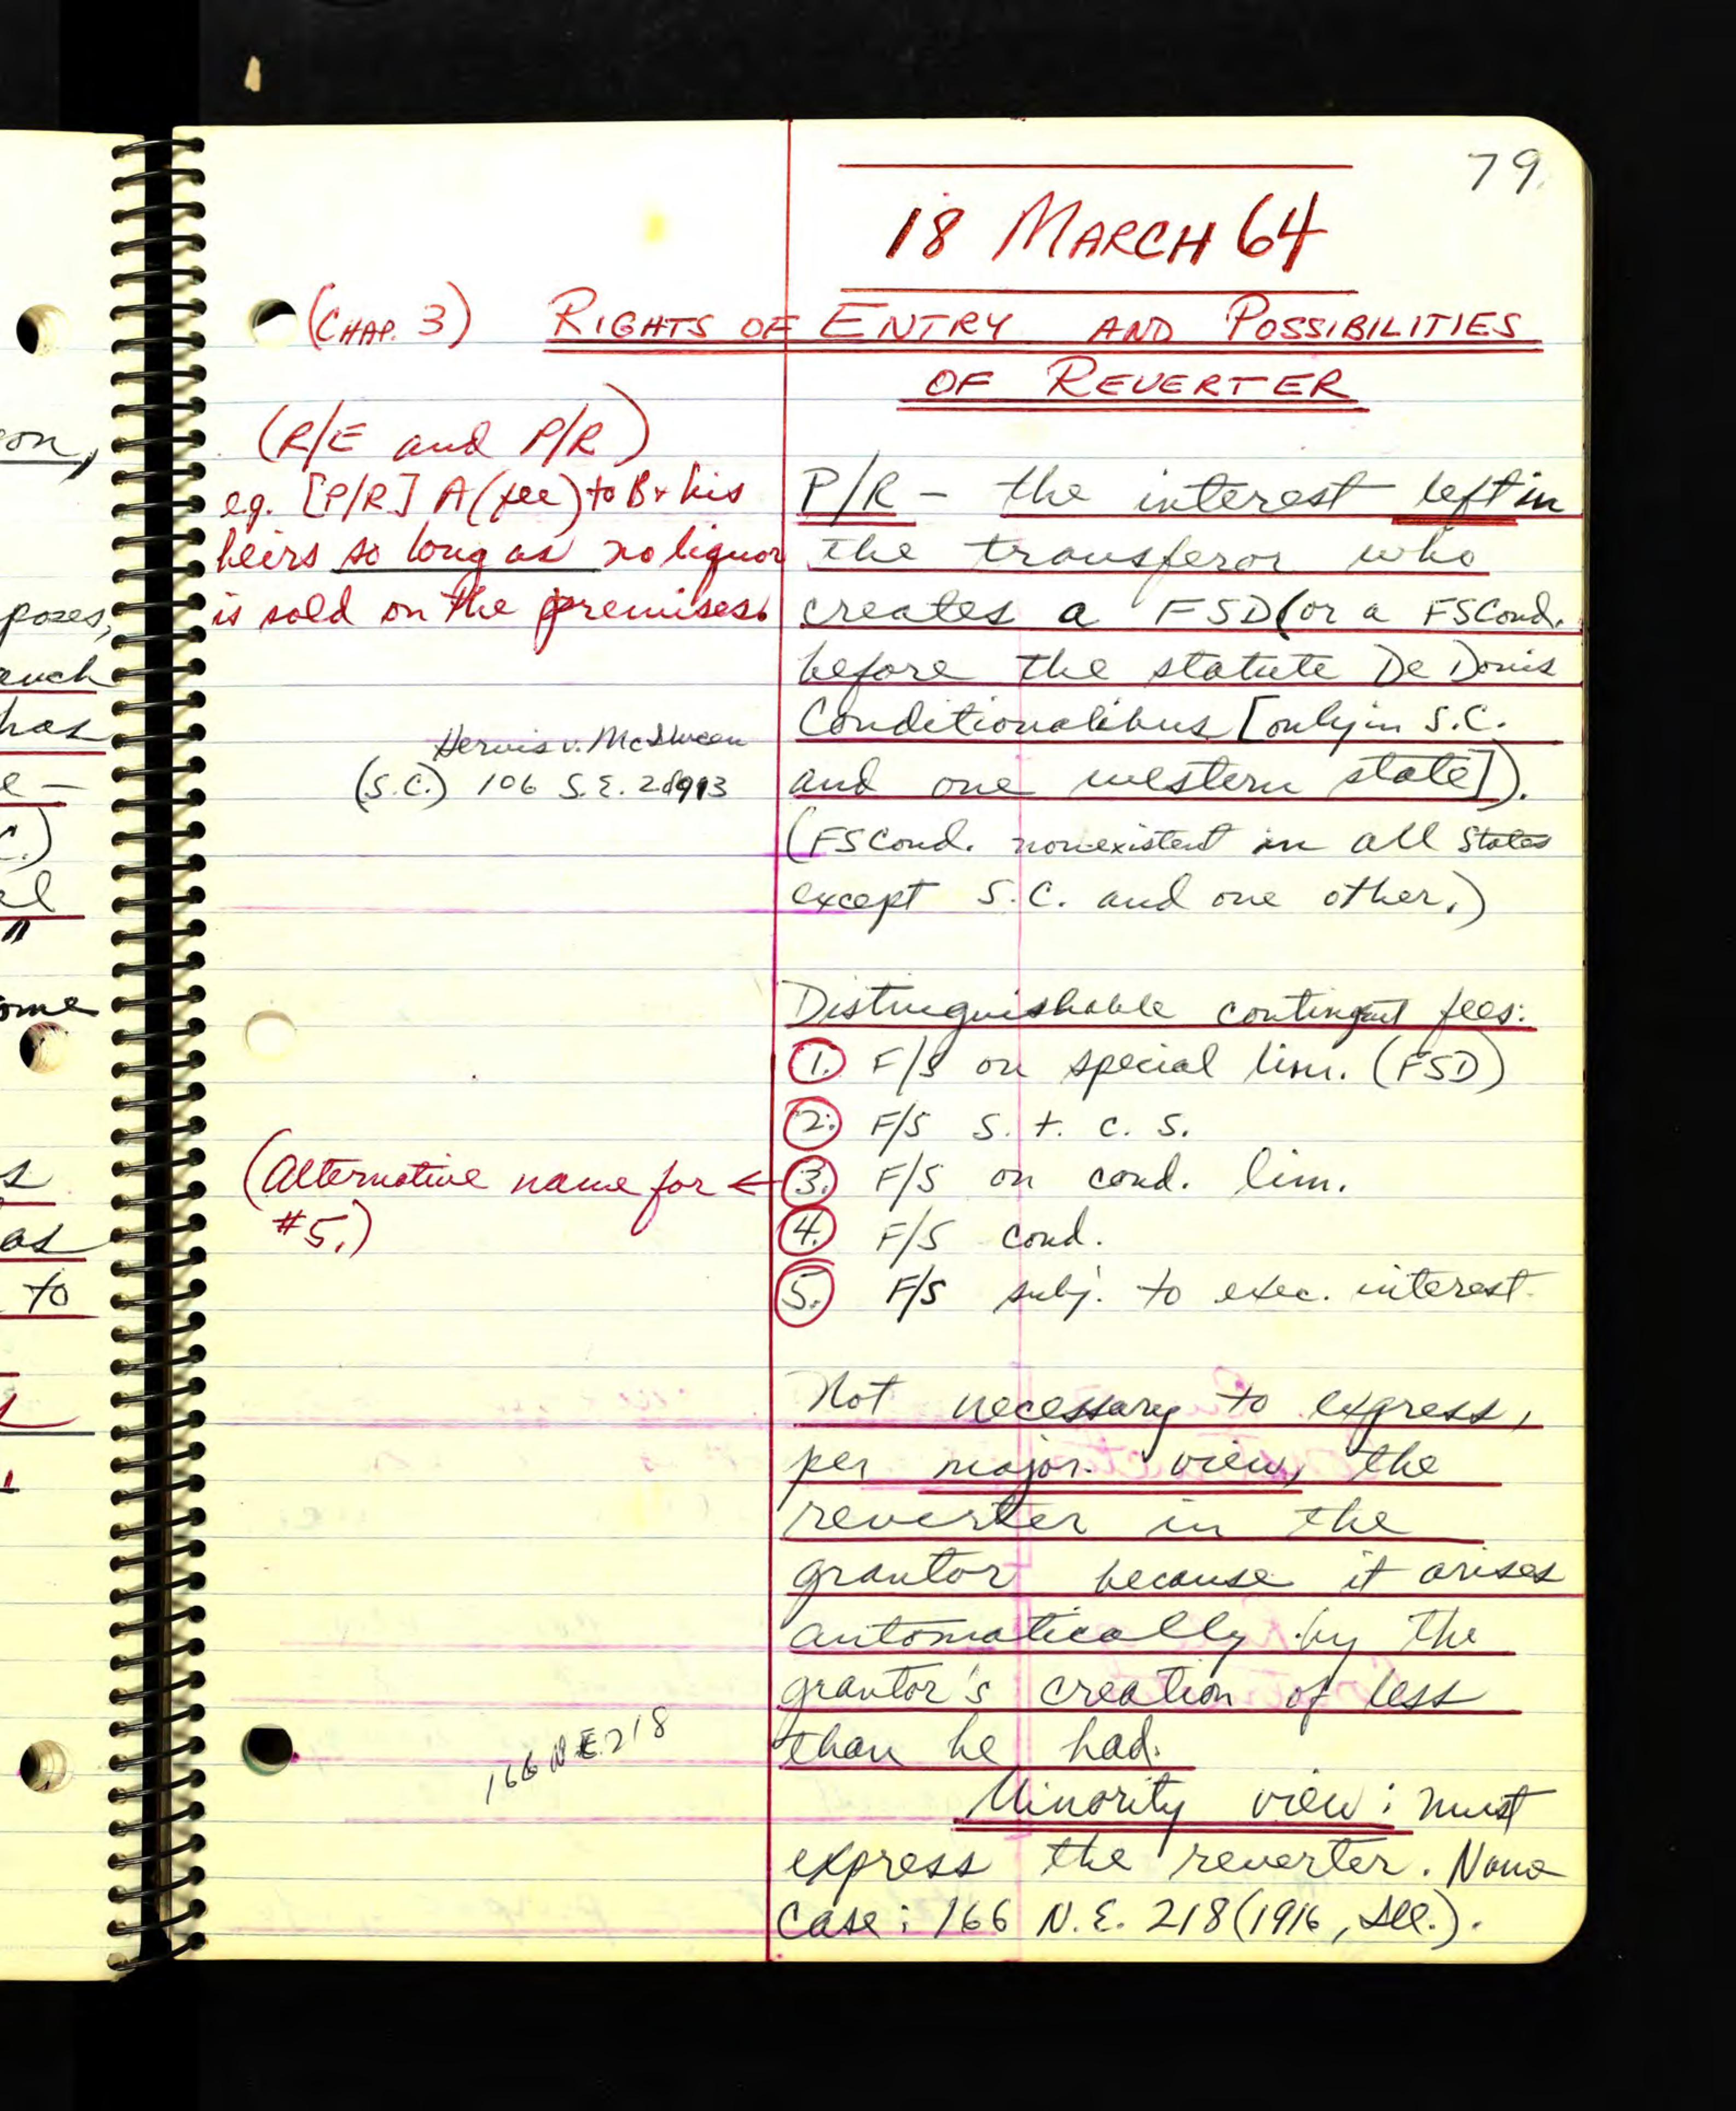 79.
18 MARCH 64
(CHAP. 3) RIGHTS OF ENTRY AND POSSIBILITIES
OF REVERTER
(R/E and P/R)
e.g. [P/R] A (fee) to B + his
heirs so long as no liquor
is sold on the premises.
P/R - the interest left in
the transferor who
creates a FSD (or a FSCond.
before the statute De Donis
Conditionalibus [only in S.C.
and one western state]).
(FSCond. nonexistent in all States
except S.C. and one other.)
v.
(S.C.) 106 S.E. 2d 913
Distinguishable contingent fees:
1. F/S on special lim. (FSD)
2. F/S S. t. c. s.
3. F/S on cond. lim.
(Alternative name for ←
#5.)
4. F/S cond.
5. F/S subj. to exec. interest.
Not necessary to express,
per major. view, the
reverter in the
grantor because it arises
automatically by the
grantor's creation of less
than he had.
166 N.E. 218
Minority view: must
express the reverter. Nana
Case: 166 N.E. 218 (1916, Ill.).
on,
poses,
has
e -
c.)
el
"
ome
s
as
to